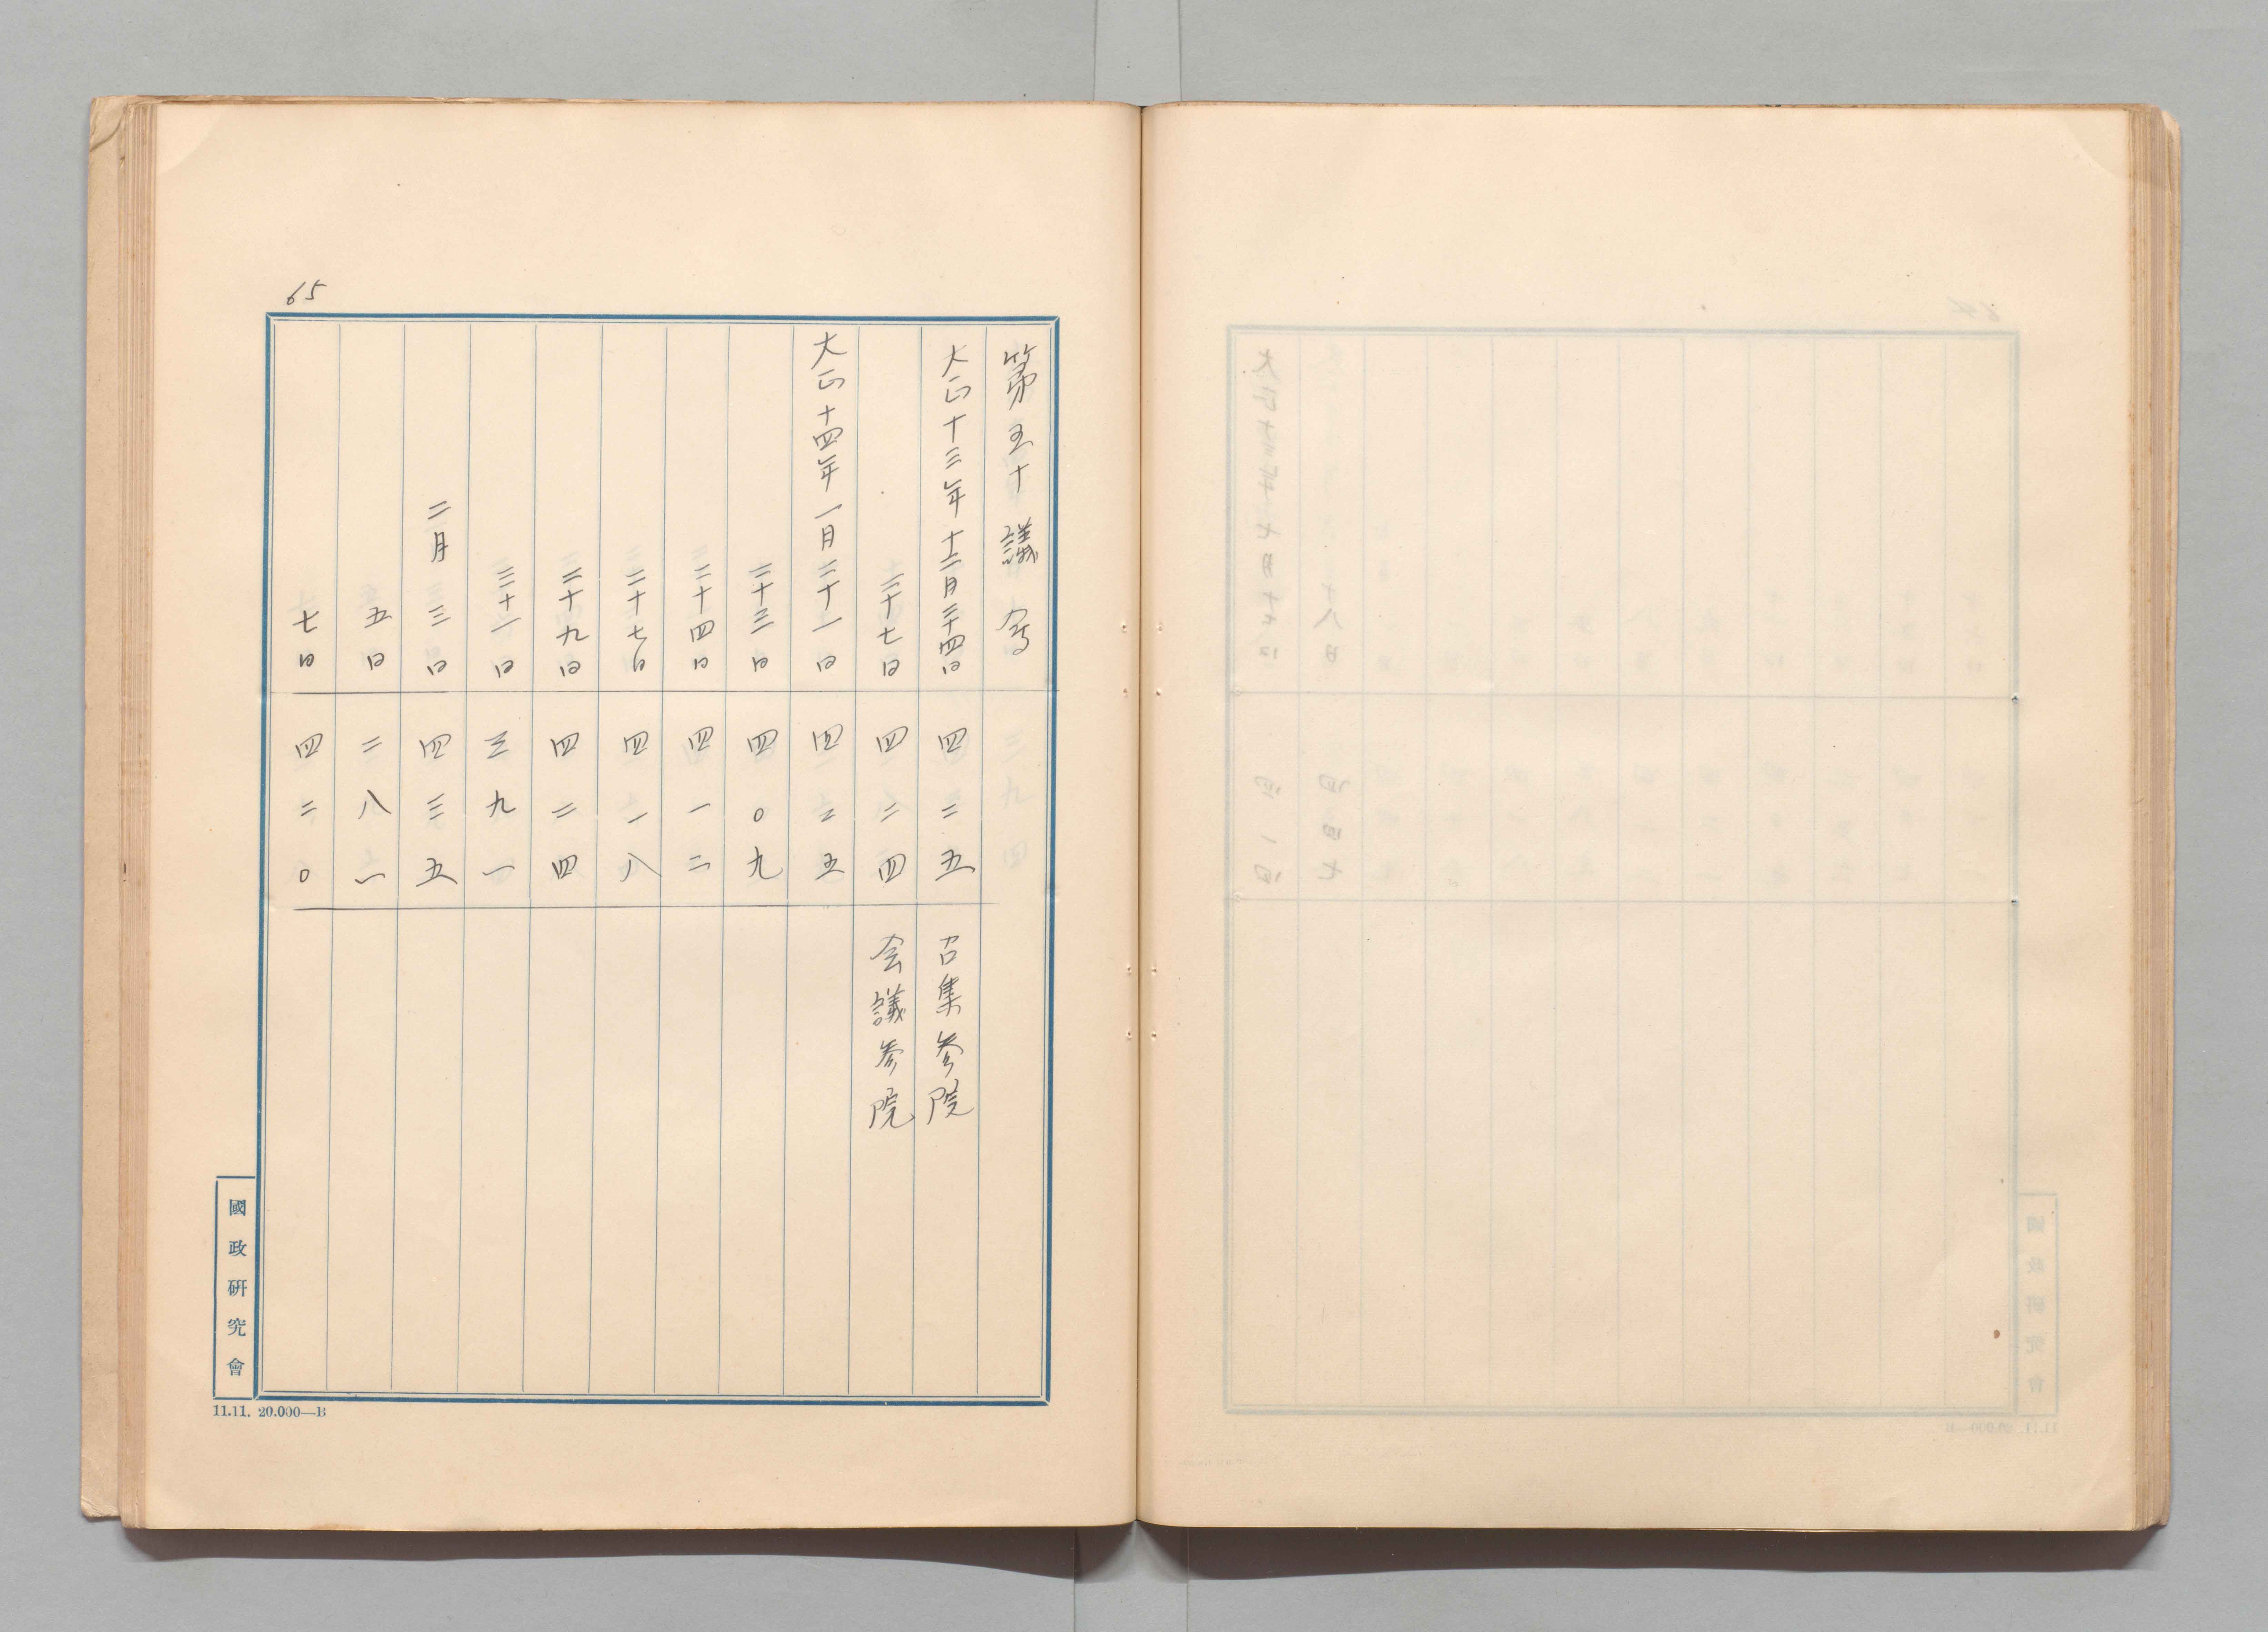 65
第五十議会
大正十三年十二月二十四日 四二五 召集参院
二十七日 四二四 会議参院
大正十四年一月二十一日 四二五
二十三日 四〇九
二十四日 四一二
二十七日 四一八
二十九日 四二四
三十一日 三九一
二月三日 四三五
五日 二八一
七日 四二〇
國政研究會
11.11. 20.000—B